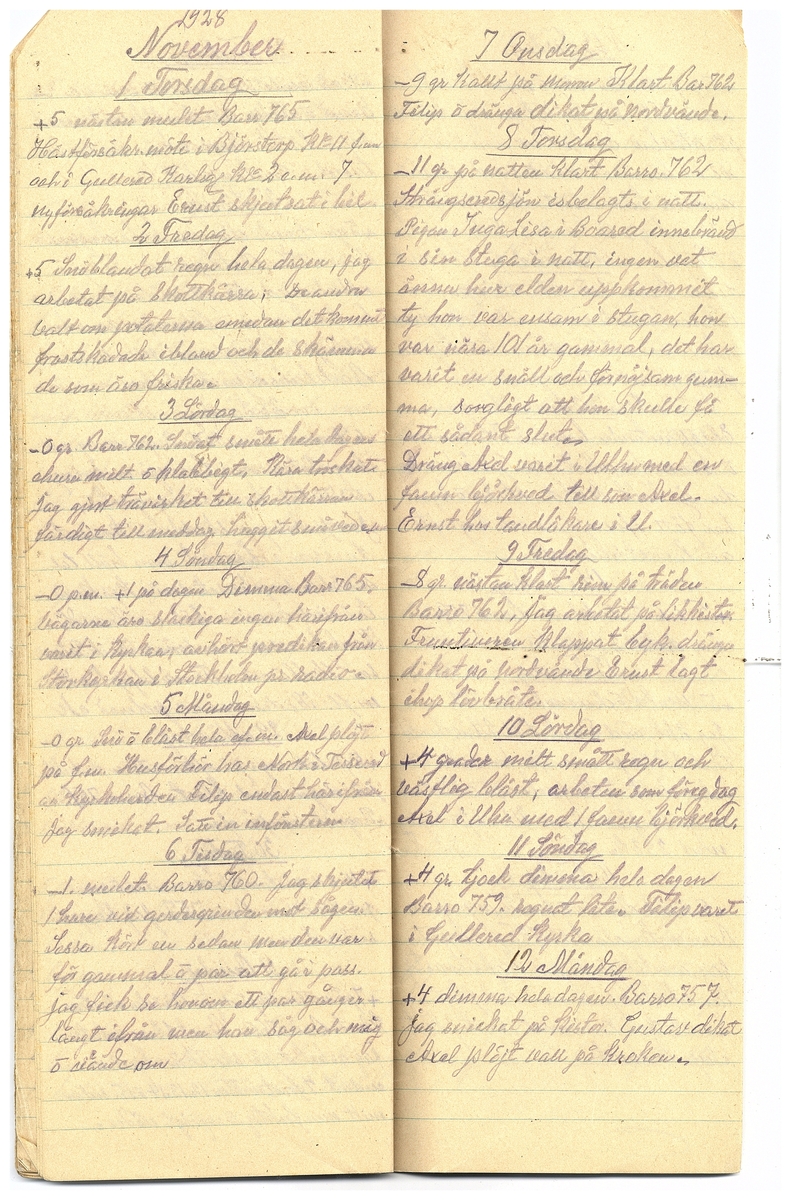 1928
November
1 Torsdag
+5 nästan mulet Barr 765
Hästförsäkr. möte i Björstorp Kl 11 f.m
och i Gullered Karby Kl 2 e.m. 7
nyförsäkringar Ernst skjutsat i bil
2 Fredag
+5 Snöblandat regn hela dagen, jag
arbetat på Skottkärra, De andra
valt om potaterna emedan det kommit
frostskadade ibland och de skämma
de som äro friska.
3 Lördag
-0 gr. Barr 762. Snöat smått hela dagen
ehuru milt o klabbigt. Kära tröskat
Jag gjort träverket till skottkärran
färdigt till middag, huggit småved e.m
4 Söndag
-0 p.m. +1 på dagen Dimma Barr 765.
vägarna äro slaskiga ingen härifrån
varit i kyrkan, avhört predikan från
Storkyrkan i Stockholm pr radio.
5 Måndag
-0 gr. Snö o blåst hela e.m. Axel plöjt
på f.m. Husförhör hos North i Tosserod
av Kyrkoherden Filip endast härifrån
Jag snickat. Satt in innfönstern
6 Tisdag
-1. mulet. Barro 760. Jag skjutit
1 hare vid gerdesgrinden mot Sågen.
Sessa kört en sedan men den var
för gammal o par att gå i pass.
jag fick se honom ett par gånger
långt ifrån men han såg och mig
o vände om
7 Onsdag
-9 gr Kallt på moron Klart Bar 762
Filip o dränga dikat på Nordvände.
8 Torsdag
-11 gr på natten Klart Barro. 762
Strängseredsjön isbelagts i natt.
Pigan Inga Lisa i Boared innebränd
i sin stuga i natt, ingen vet
ännu hur elden uppkommit
ty hon var ensam i stugan, hon
var nära 101 år gammal, det har
varit en snäll och förnöjsam gum-
ma, sorgligt att hon skulle få
ett sådant slut.
Dräng Axel varit i Ulhu med en
famn björkved till sin Axel.
Ernst hos tandläkare i U.
9 Fredag
-8 gr. nästan klart rim på träden
Barro 762, Jag arbetat på likkistor.
Fruntimren klappat byk. dränga
dikat på Nordvände Ernst lagt
ihop lövbråte.
10 Lördag
+4 grader milt smått regn och
västlig blåst, arbeten som föreg dag
Axel i Uhu med 1 famn björkved.
11 Söndag
+4 gr. tjock dimma hela dagen
Barro 759. regnat lite. Filip varit
i Gullered Kyrka
12 Måndag
+4 dimma hela dagen. Barro 757.
jag snickat på kistor. Gustav dikat
Axel plöjt vall på Kroken.